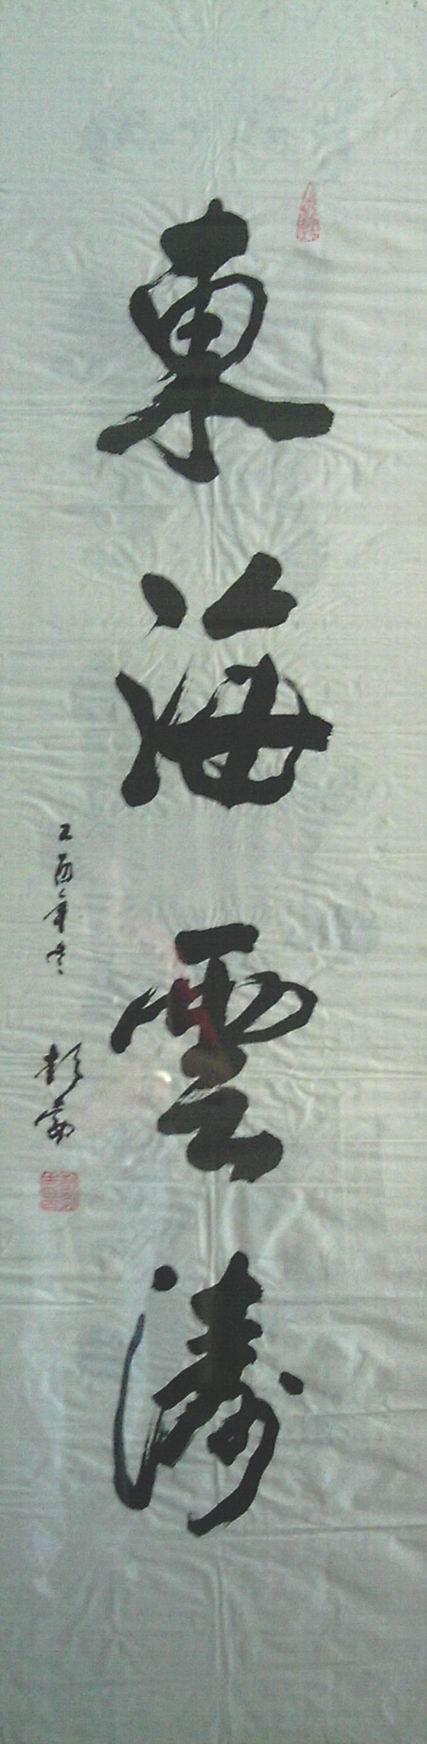 東海雲濤
乙酉年冬